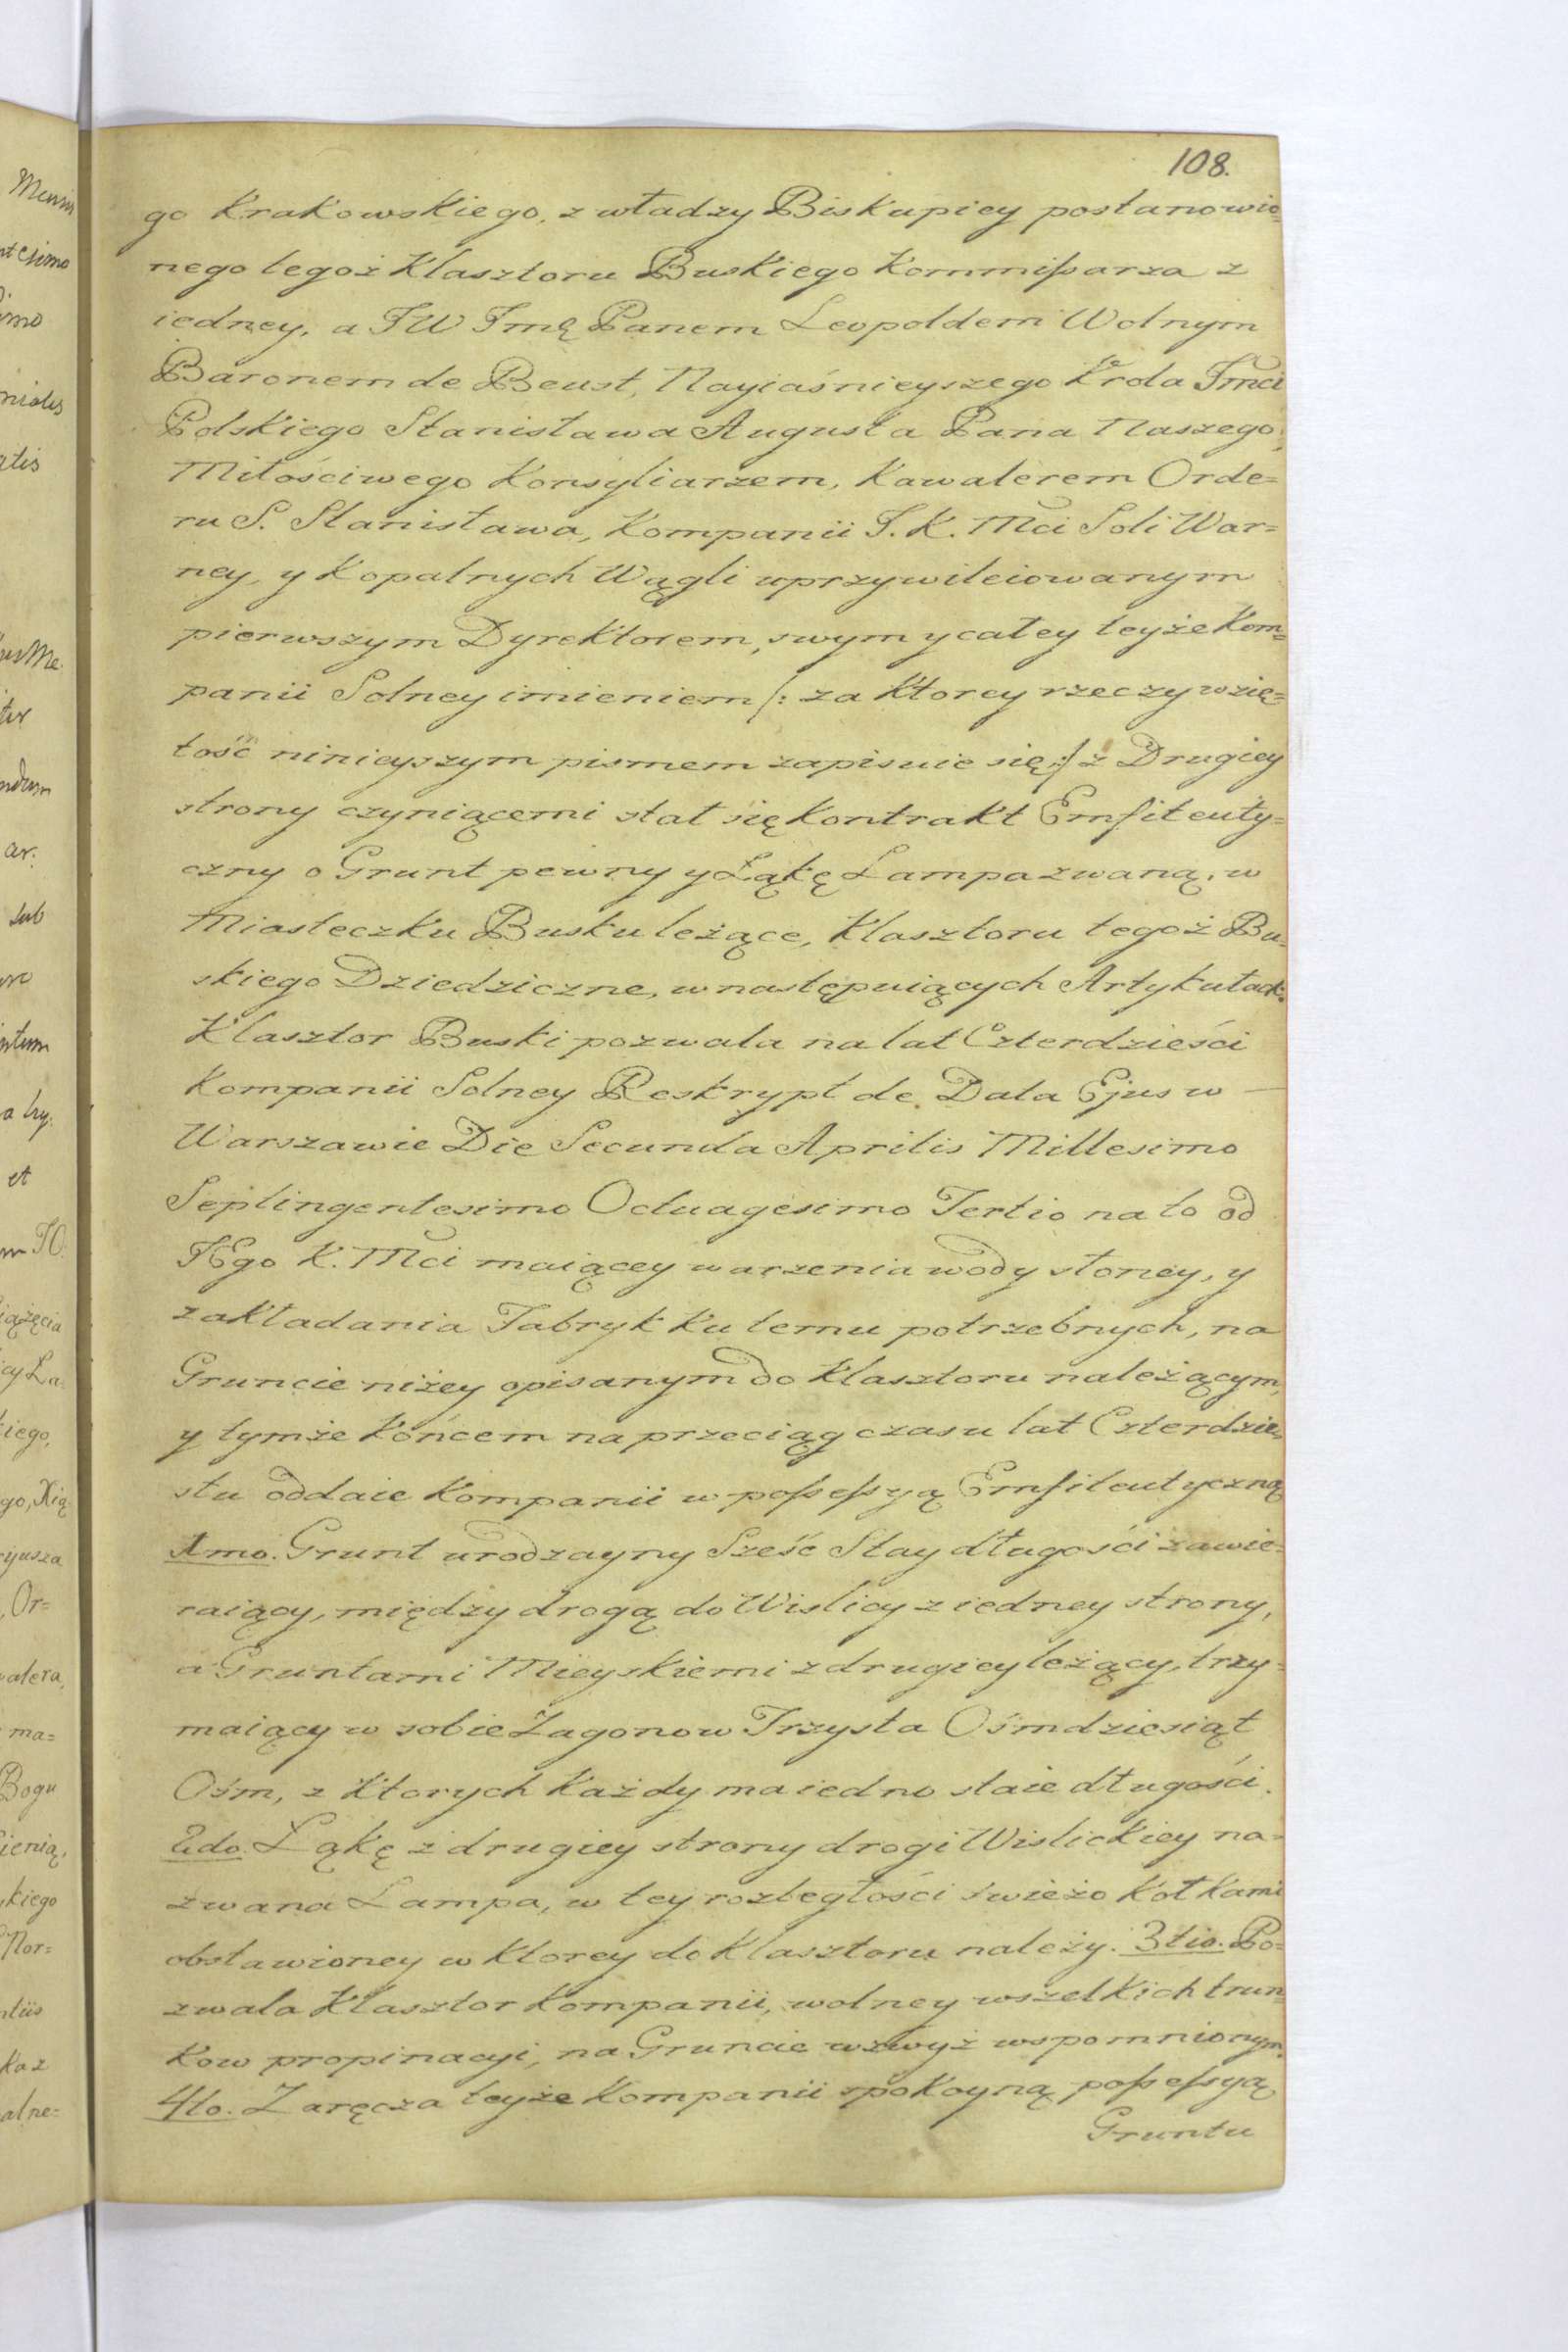 108.
go Krakowskiego, z władzy Biskupiey postanowio=
nego tegoż Klasztoru Buskiego Kommißarza z
iedney, a JW Jmę Panem Leopoldem Wolnym
Baronem de Beust, Nayiaśnieyszego Krola Jmci
Polskiego Stanisława Augusta Pana Naszego
Miłościwego Konsyliarzem, Kawalerem Orde=
ru S. Stanisława, Kompanii J. K. Mci Soli War=
ney, y Kopalnych Wągli uprzywileiowanym
pierwszym Dyrektorem, swym y całey teyże Kom=
panii Solney imieniem /: za ktorey rzeczywzię=
tość ninieyszym pismem zapisuie się :/ z Drugiey
strony czyniącemi stał się Kontrakt Emfiteuty=
czny o Grunt pewny y Łąkę Lampa zwaną, w
Miasteczku Busku leżące, Klasztoru tegoż Bu=
skiego Dziedziczne, w następuiących Artykułach.
Klasztor Buski pozwala na lat Czterdzieści
Kompanii Solney Reskrypt de Data Ejus w
Warszawie Die Secunda Aprilis Millesimo
Septingentesimo Octuagesimo Tertio na to od
JEgo K. Mci maiącey warzenia wody słoney, y
zakładania Fabryk ku temu potrzebnych, na
Gruncie niżey opisanym do Klasztoru należącym,
y tymże końcem na przeciąg czasu lat Czterdzie=
stu oddaie Kompanii w poßeßyą Emfiteutyczną
1mo. Grunt urodzayny Sześć Stay długości zawie=
raiący, między drogą do Wislicy z iedney strony,
a Gruntami Mieyskiemi z drugiey leżący, trzy=
maiący w sobie Zagonow Trzysta Ośmdziesiąt
Ośm, z ktorych każdy ma iedno staie długości.
2do. Łąkę z drugiey strony drogi Wislickiey na=
zwana Lampa, w tey rozległości świeżo kołkami
obstawioney w ktorey do Klasztoru należy. 3tio. Po=
zwala Klasztor Kompanii, wolney wszelkich trun=
kow propinacyi, na Gruncie wzwyż wspomnionym.
4to. Zaręcza teyże Kompanii spokoyną poßeßyą
Gruntu